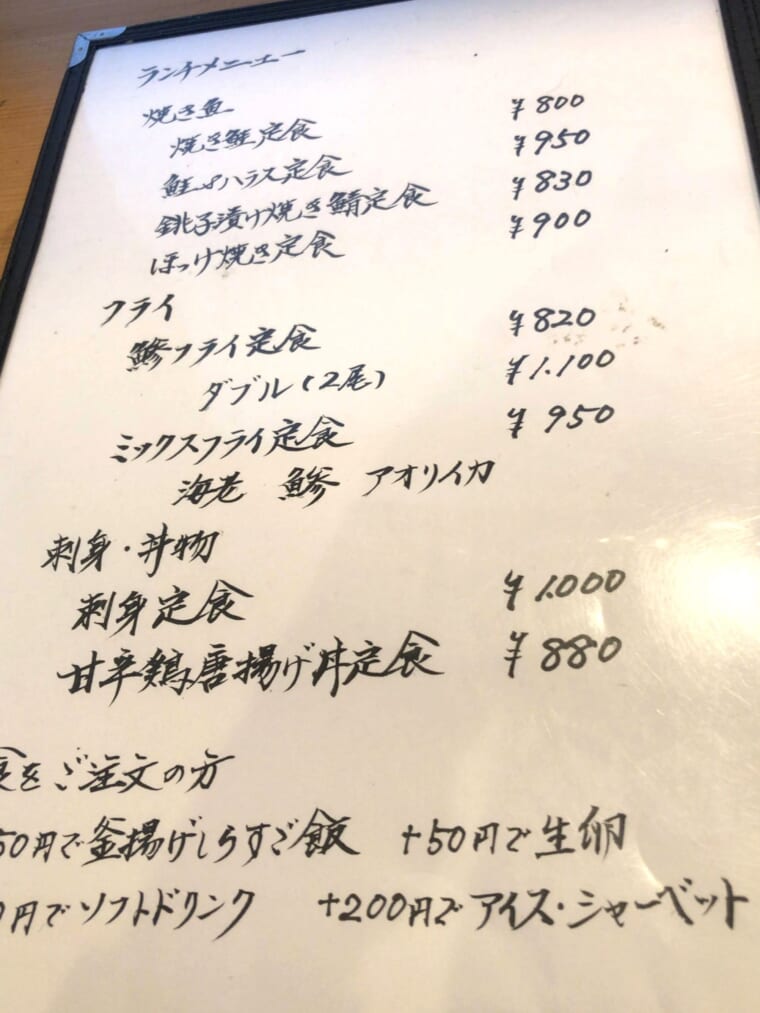 ランチメニュー
焼き魚
焼き鮭定食 ¥800
鮭のハラス定食 ¥950
銚子漬け焼き鯖定食 ¥830
ほっけ焼き定食 ¥900
フライ
鯵フライ定食 ¥820
ダブル(2尾) ¥1.100
ミックスフライ定食 ¥950
海老 鯵 アオリイカ
刺身・丼物
刺身定食 ¥1.000
甘辛鶏唐揚げ丼定食 ¥880
食をご注文の方
50円で釜揚げしらすご飯 +50円で生卵
0円でソフトドリンク +200円でアイス・シャーベット